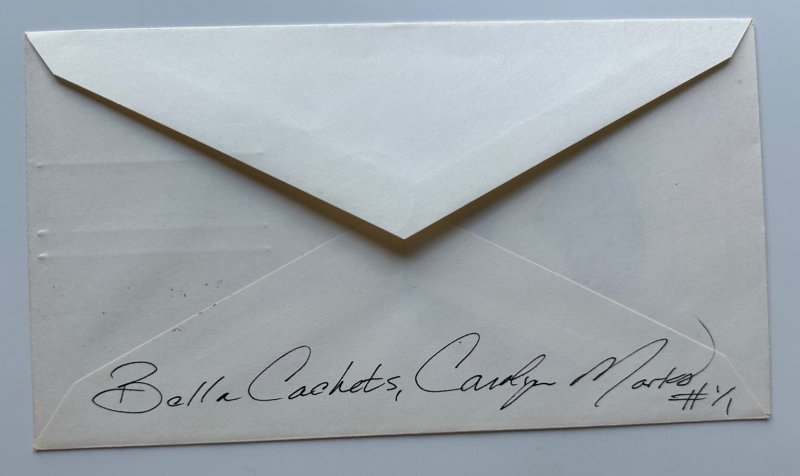 Bella Cachets, Carolyn Marks
#1/1